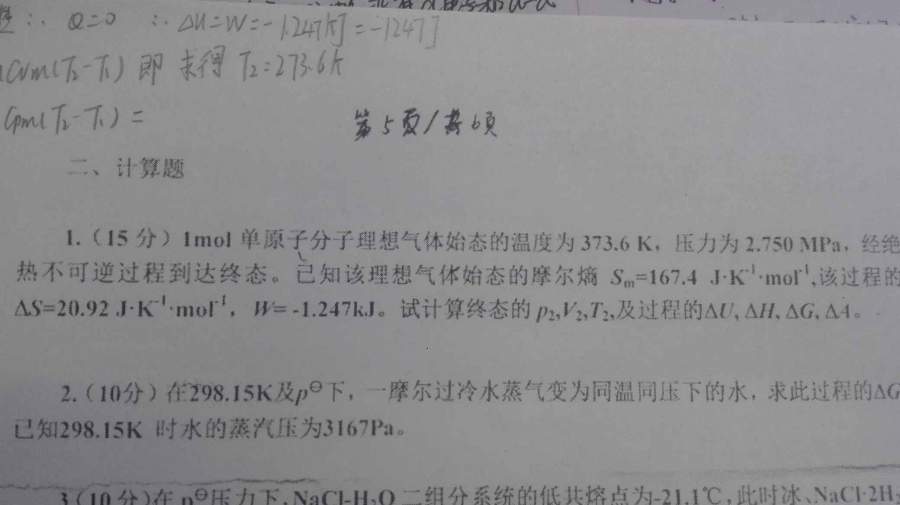 ∴ Q=0 ∴ ΔU=W=-1.247kJ=-1247J
CVm(T₂-T₁) 即 求得 T₂=273.6K
Cpm(T₂-T₁)=
第5页/共6页
二、计算题
1.（15分）1mol 单原子分子理想气体始态的温度为 373.6 K，压力为 2.750 MPa，经绝
热不可逆过程到达终态。已知该理想气体始态的摩尔熵 Sₘ=167.4 J·K⁻¹·mol⁻¹,该过程的
ΔS=20.92 J·K⁻¹·mol⁻¹，W= -1.247kJ。试计算终态的 p₂,V₂,T₂,及过程的ΔU, ΔH, ΔG, ΔA。
2.（10分）在298.15K及p⊖下，一摩尔过冷水蒸气变为同温同压下的水，求此过程的ΔG
已知298.15K 时水的蒸汽压为3167Pa。
3.(10分)在 p⊖压力下,NaCl-H₂O 二组分系统的低共熔点为-21.1℃,此时冰、NaCl·2H₂